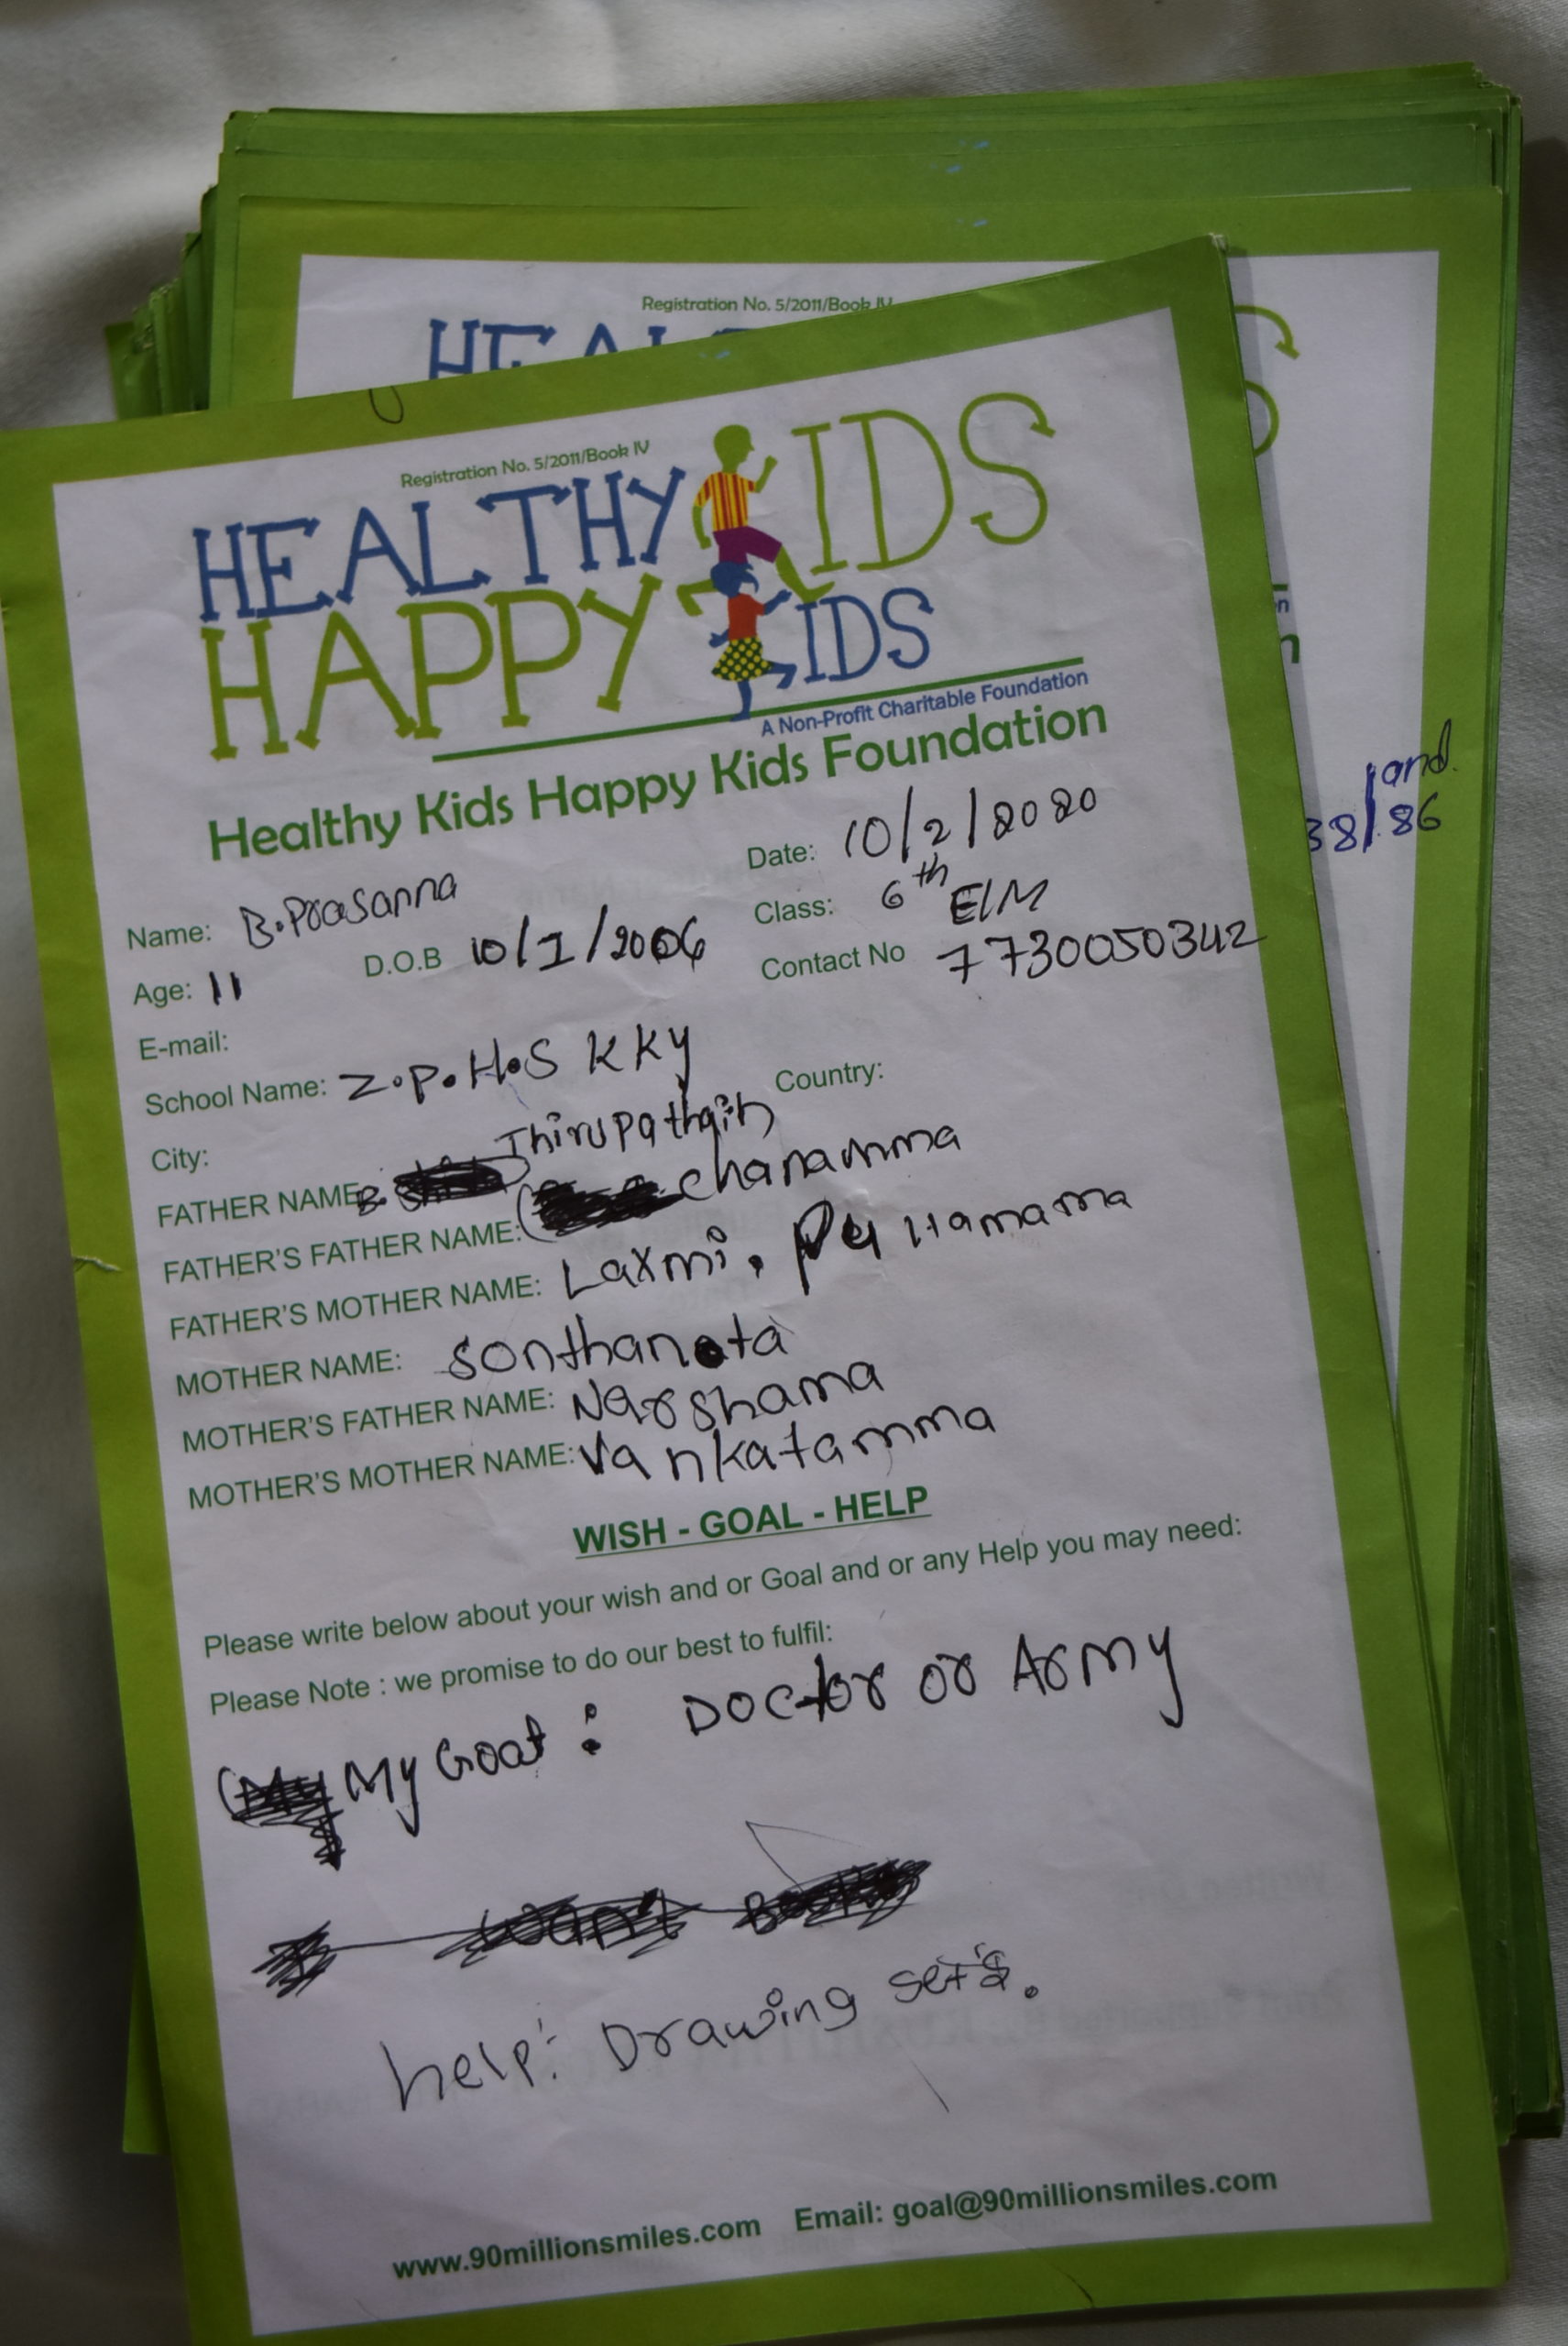 Registration No. 5/2011/Book IV
HEAL
Registration No. 5/2011/Book IV
HEALTHY KIDS
HAPPY KIDS
A Non-Profit Charitable Foundation
Healthy Kids Happy Kids Foundation
Date: 10/2/2020
Name: B.Prasanna
Class: 6th E/M
Age: 11 D.O.B 10/1/2006
Contact No 7730050342
E-mail:
School Name: Z.P.H.S KKY
City: Country:
FATHER NAME: B. Thirupathaih
FATHER'S FATHER NAME: chanamma
FATHER'S MOTHER NAME: Laxmi.
MOTHER NAME: Sonthanota
MOTHER'S FATHER NAME: Narshama
MOTHER'S MOTHER NAME: Vankatamma
WISH - GOAL - HELP
Please write below about your wish and or Goal and or any Help you may need:
Please Note : we promise to do our best to fulfil:
My Goat : Doctor or Army
want Books
help: Drawing set's.
www.90millionsmiles.com Email: goal@90millionsmiles.com
and.
38/86